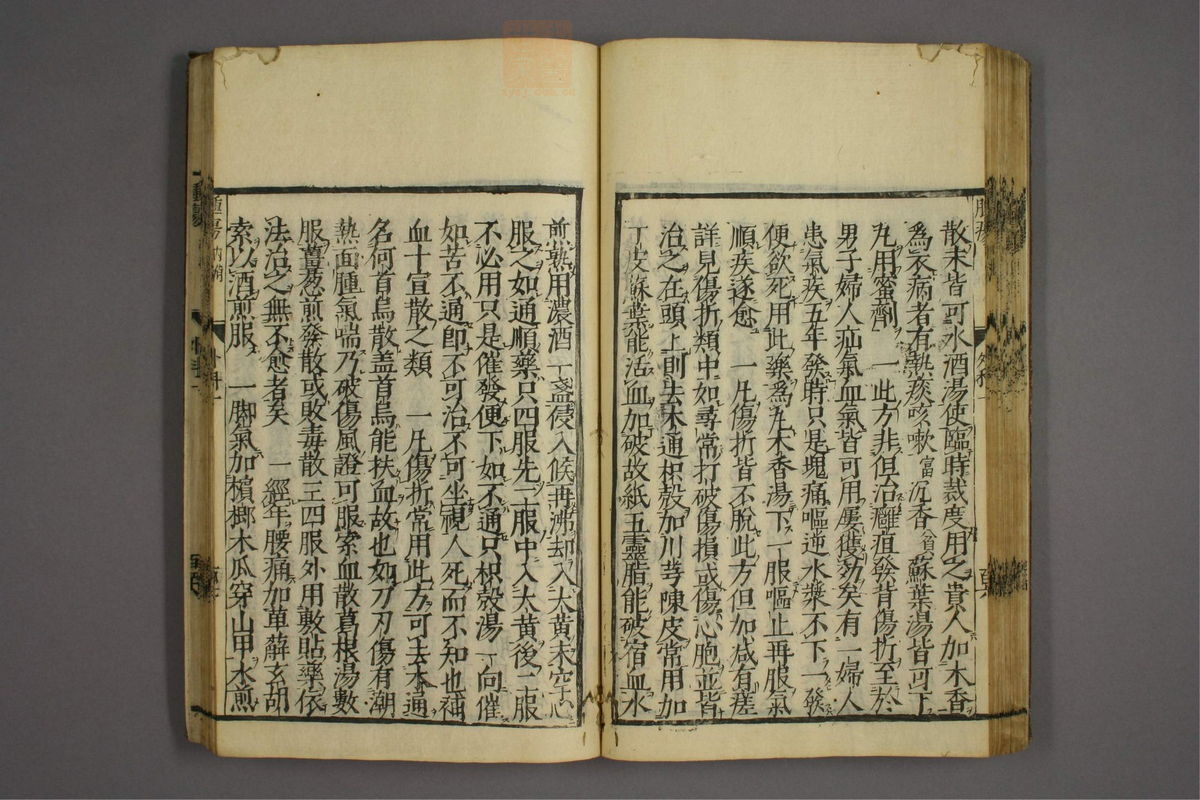 散末皆可水酒湯使臨時裁度用之貴人加木香
為衣病者有熱痰咳嗽富沉香貧蘇葉湯皆可下
丸用蜜劑 一此方非但治癰疽發背傷折至於
男子婦人疝氣血氣皆可用屢獲効矣有一婦人
患氣疾五年發時只是塊痛嘔逆水漿不下一發
便欲死用此藥為丸木香湯下一服嘔止再服氣
順疾遂愈 一凡傷折皆不脫此方但加減有差
詳見傷折類中如尋常打破傷損或傷心胞並皆
治之在頭上則去木通枳殼加川芎陳皮常用加
丁皮蘇葉能活血加破故紙五靈脂能破宿血水
煎熟用濃酒一盞侵入候再沸却入大黄末空心
服之如通順藥只四服先二服中入大黄後二服
不必用只是催發便下如不通只枳殼湯一向催
如苦不通即不可治不可坐視人死而不知也補
血十宣散之類 一凡傷折常用此方可去木通
名何首烏散蓋首烏能扶血故也如刀刃傷有潮
熱面腫氣喘乃破傷風證可服索血散葛根湯數
服薑葱煎發散或敗毒散三四服外用敷貼藥依
法治之無不愈者矣 一經年腰痛加萆薢玄胡
索以酒煎服 一脚氣加檳榔木瓜穿山甲水煎
外科一